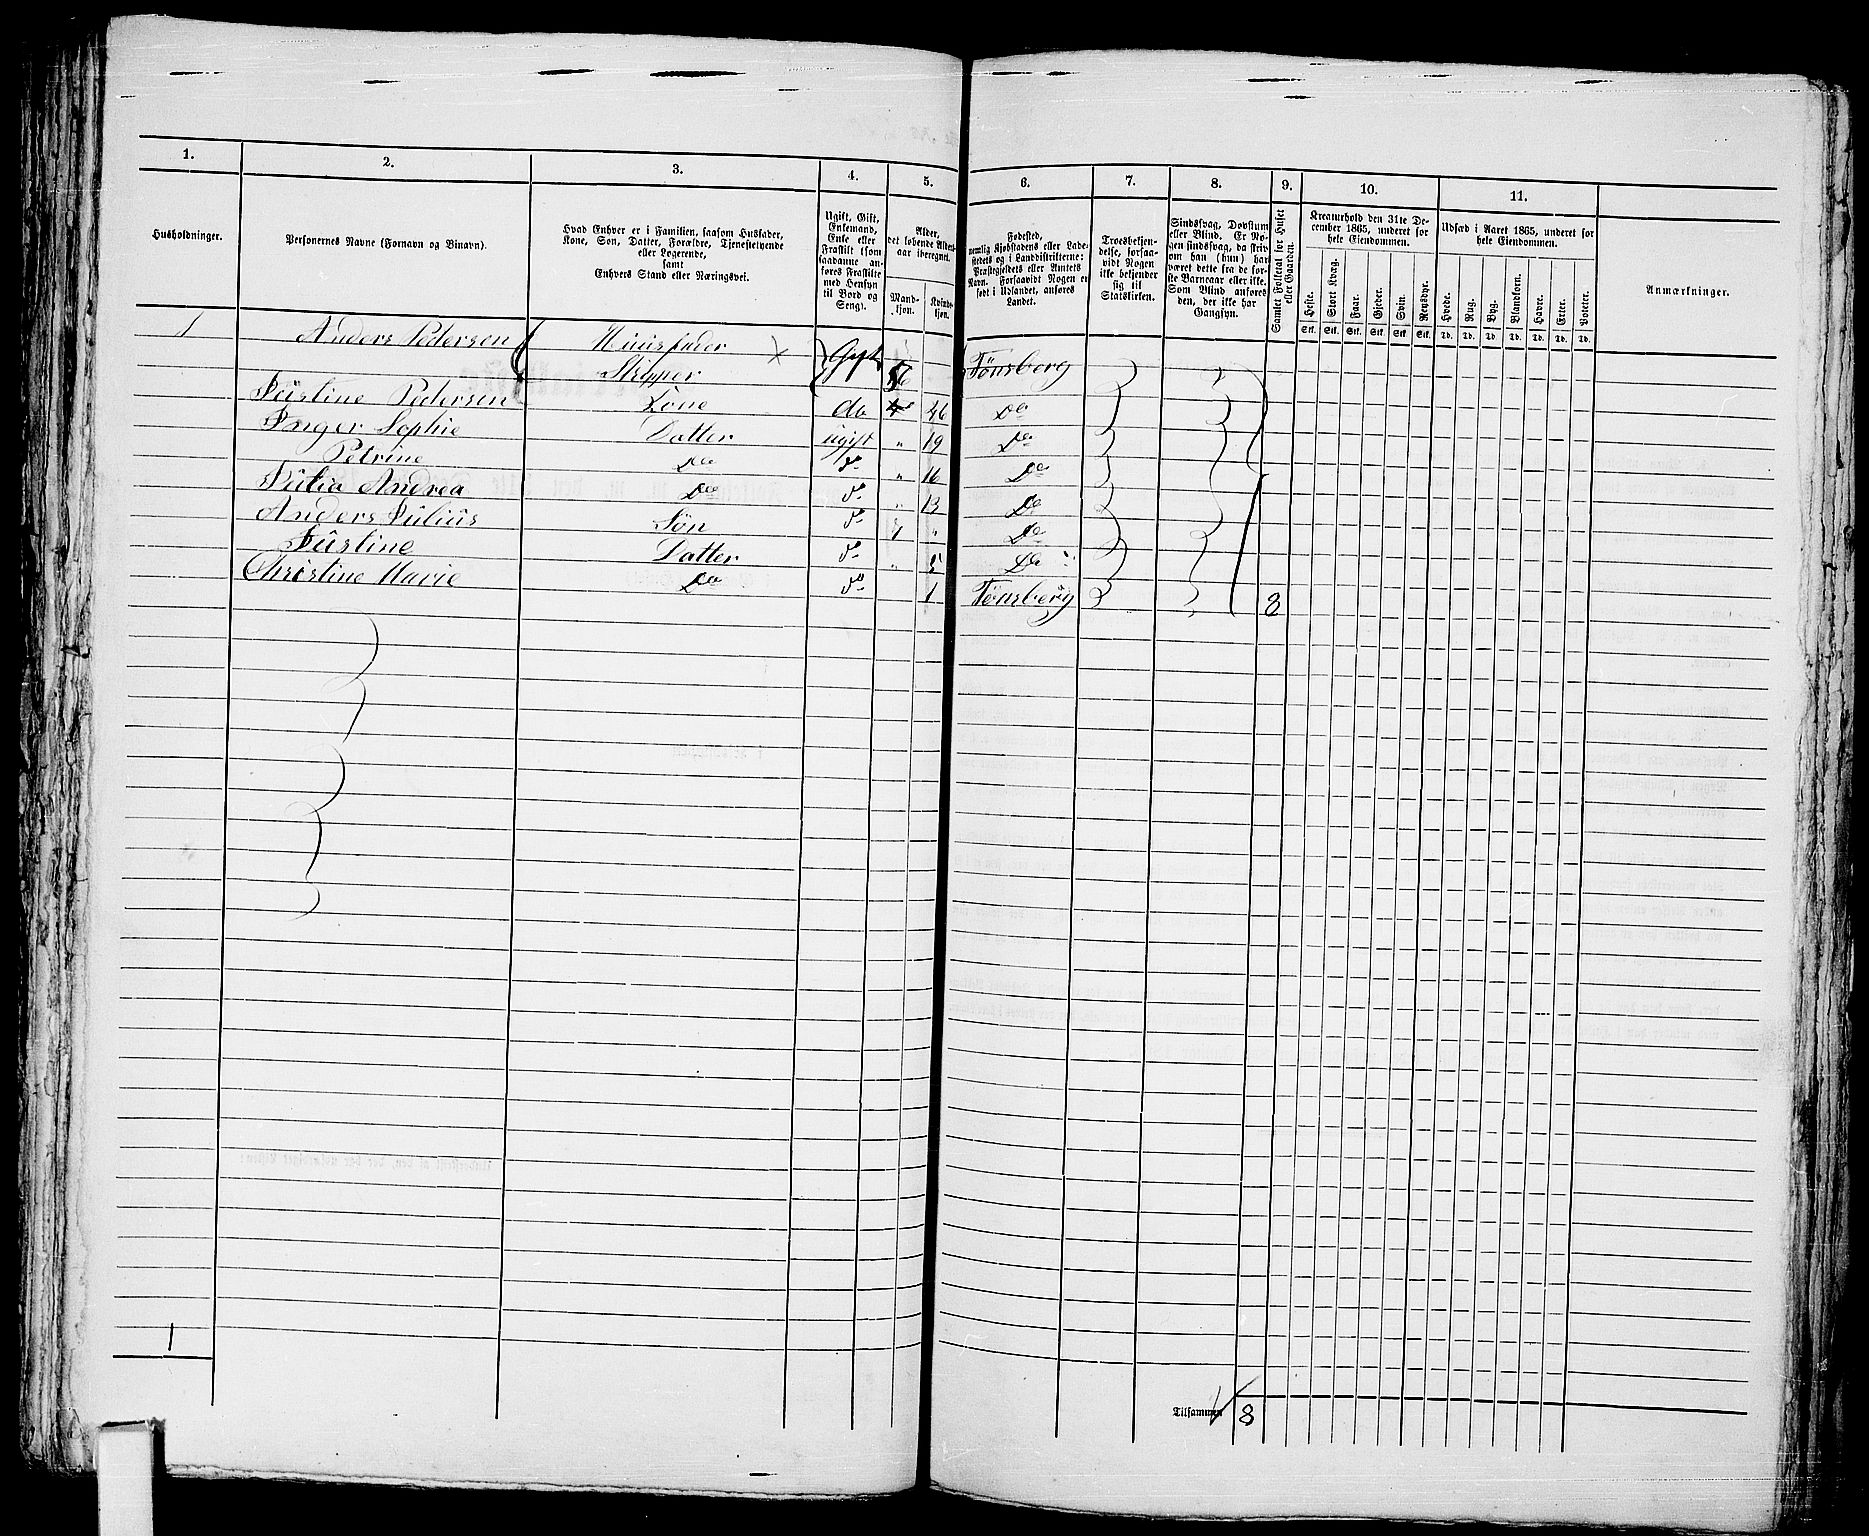 1. 2. 3. 4. 5. 6. 7. 8. 9. 10. 11.
Husholdninger.
Personernes Navne (Fornavn og Binavn).
Hvad Enhver er i Familien, saasom Husfader,
Kone, Søn, Datter, Forældre, Tjenestetyende
eller Logerende,
samt
Enhvers Stand eller Næringsvei.
Ugift, Gift,
Enkemand,
Enke eller
Fraskilt (som
saadanne an-
føres Fraskilte
med Hensyn
til Bord og
Seng).
Alder,
det løbende Alders-
aar iberegnet.
Mand-
kjøn.
Kvinde-
kjøn.
Fødested,
nemlig Kjøbstadens eller Lade-
stedets og i Landdistrikterne:
Præstegjeldets eller Amtets
Navn. Forsaavidt Nogen er
født i Udlandet, anføres
Landet.
Troesbekjen-
delse, forsaa-
vidt Nogen
ikke bekjender
sig til
Statskirken.
Sindssvag, Døvstum
eller Blind. Er No-
gen sindssvag, da skriv
om han (hun) har
været dette fra de før-
ste Barneaar eller ikke.
Som Blind anføres
den, der ikke har
Gangsyn.
Samlet Folketal for Huset
eller Gaarden.
Kreaturhold den 31te De-
cember 1865, underet for
hele Eiendommen.
Heste. Stort Kvæg. Faar. Gjeder. Svin. Rensdyr.
Stk. Stk. Stk. Stk. Stk. Stk.
Udsæd i Aaret 1865, underet for
hele Eiendommen.
Hvede. Rug. Byg. Blandkorn. Havre. Erter. Poteter.
Td. Td. Td. Td. Td. Td. Td.
Anmærkninger.
1 Anders Pedersen Huusfader x Gift
Skipper 56 Tönsberg
Justine Pedersen Kone do 46 Do
Inger Sophie Datter ugift " 19 Do
Petrine Do do " 16 Do
Julia Andrea Do do " 13 Do
Anders Julius Søn do " Do
Justine Datter do " 5 Do
Christine Marie Do do 1 Tönsberg 8
1
Tilsammen 8